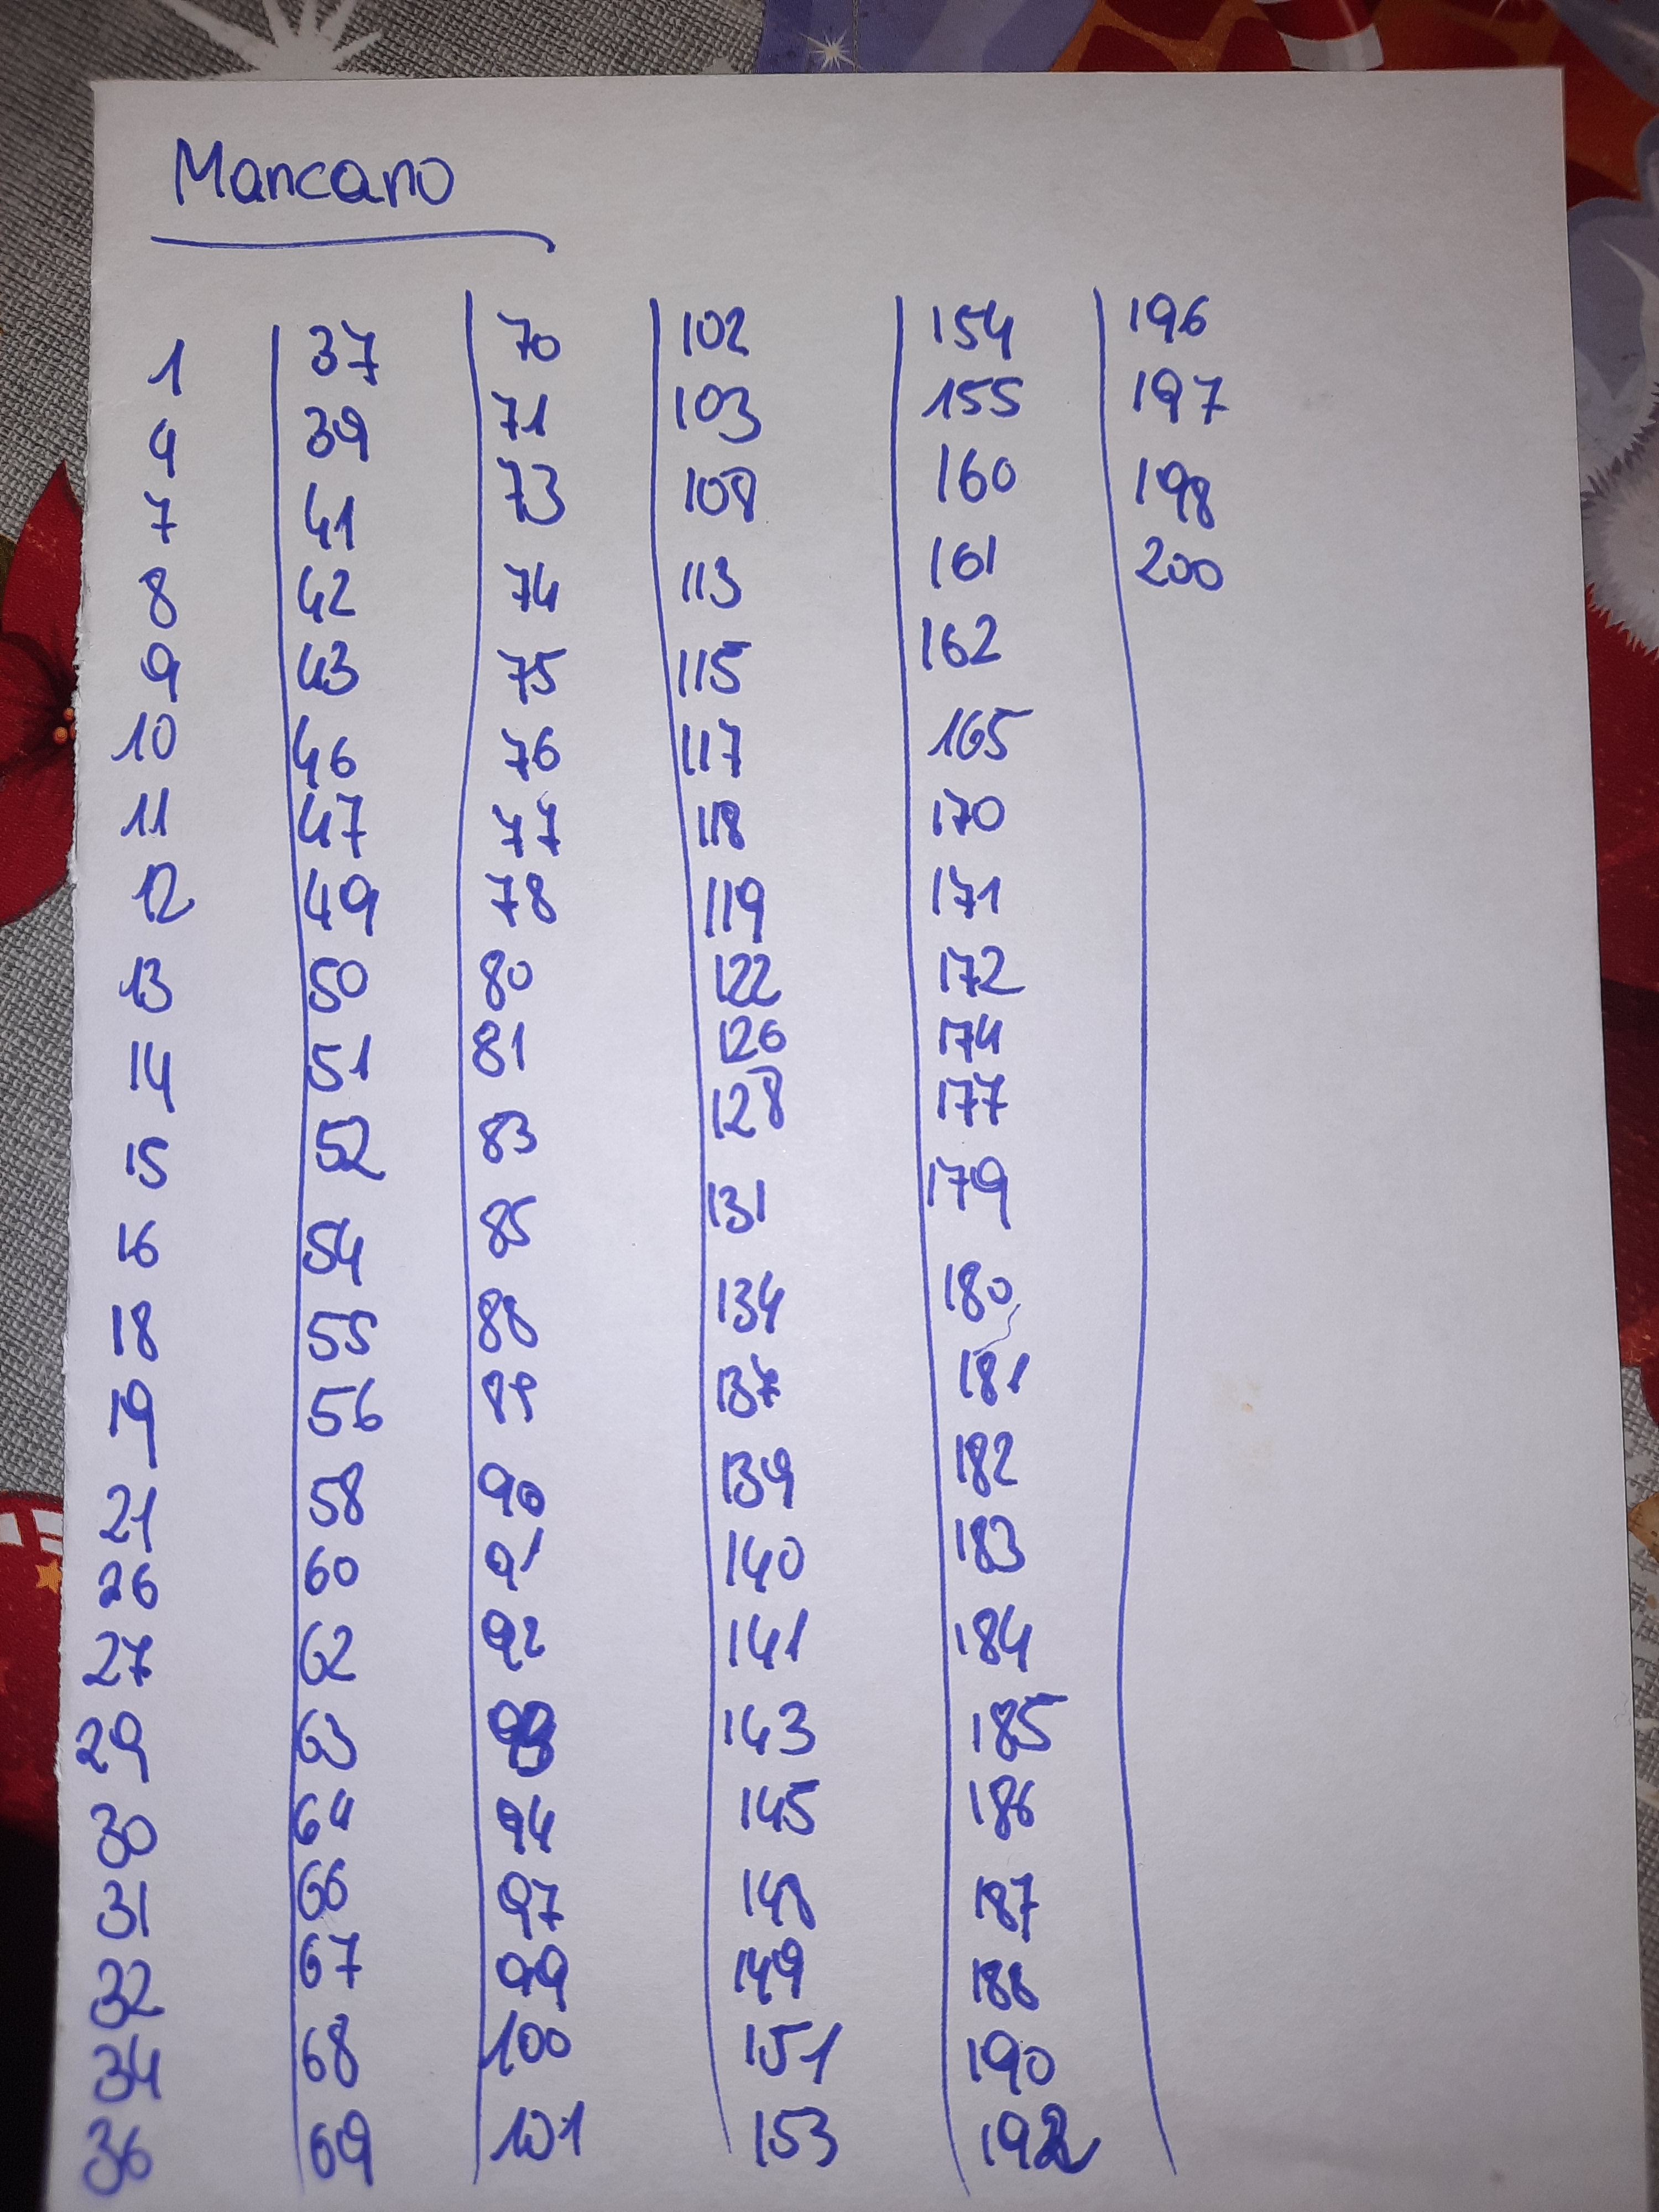 Mancano
1
4
7
8
9
10
11
12
13
14
15
16
18
19
21
26
27
29
30
31
32
34
36
37
39
41
42
43
46
47
49
50
51
52
54
55
56
58
60
62
63
64
66
67
68
69
70
71
73
74
75
76
77
78
80
81
83
85
88
89
90
91
92
93
94
97
99
100
101
102
103
108
113
115
117
118
119
122
126
128
131
134
137
139
140
141
143
145
148
149
151
153
154
155
160
161
162
165
170
171
172
174
177
179
180
181
182
183
184
185
186
187
188
190
192
196
197
198
200